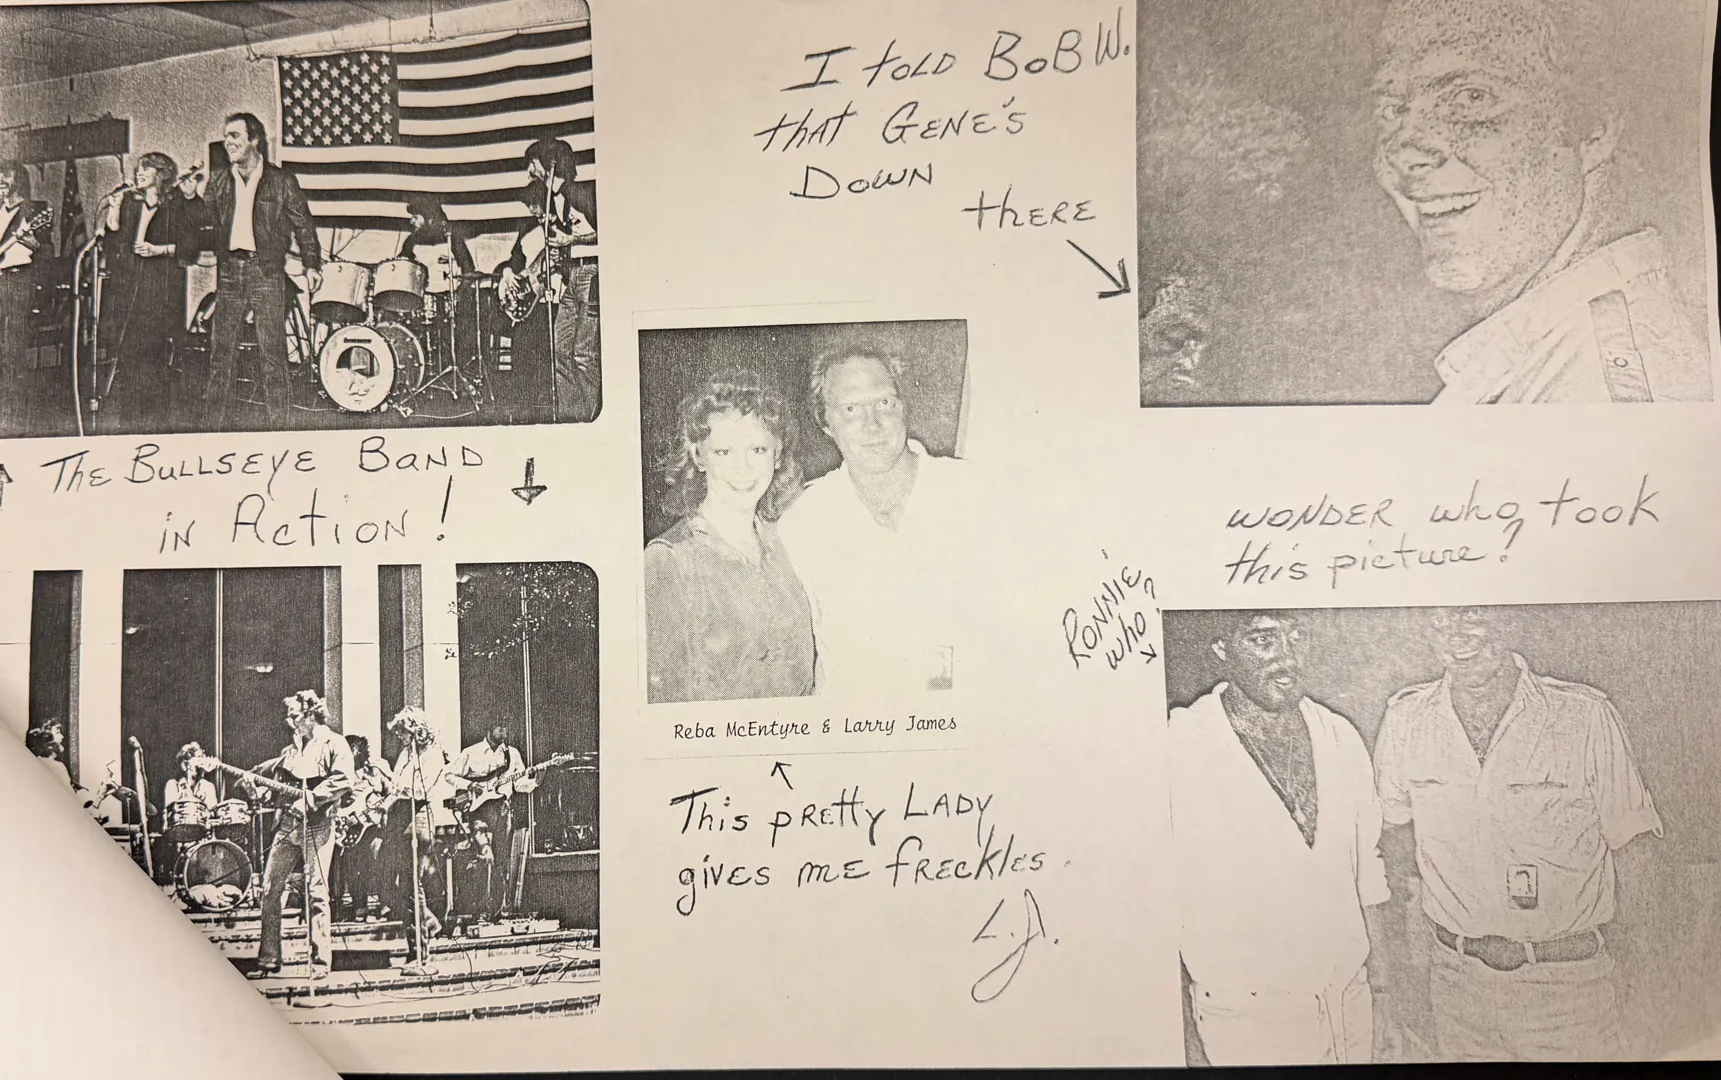 I told BoB W.
that GENE'S
DOWN
thERE
The BULLSEYE BAND
iN ACTiON!
Reba McEntyre & Larry James
This pREtty LADY
giVES mE fRECKlES.
L.J.
WONDER who took
this picture?
RONNiE
who?